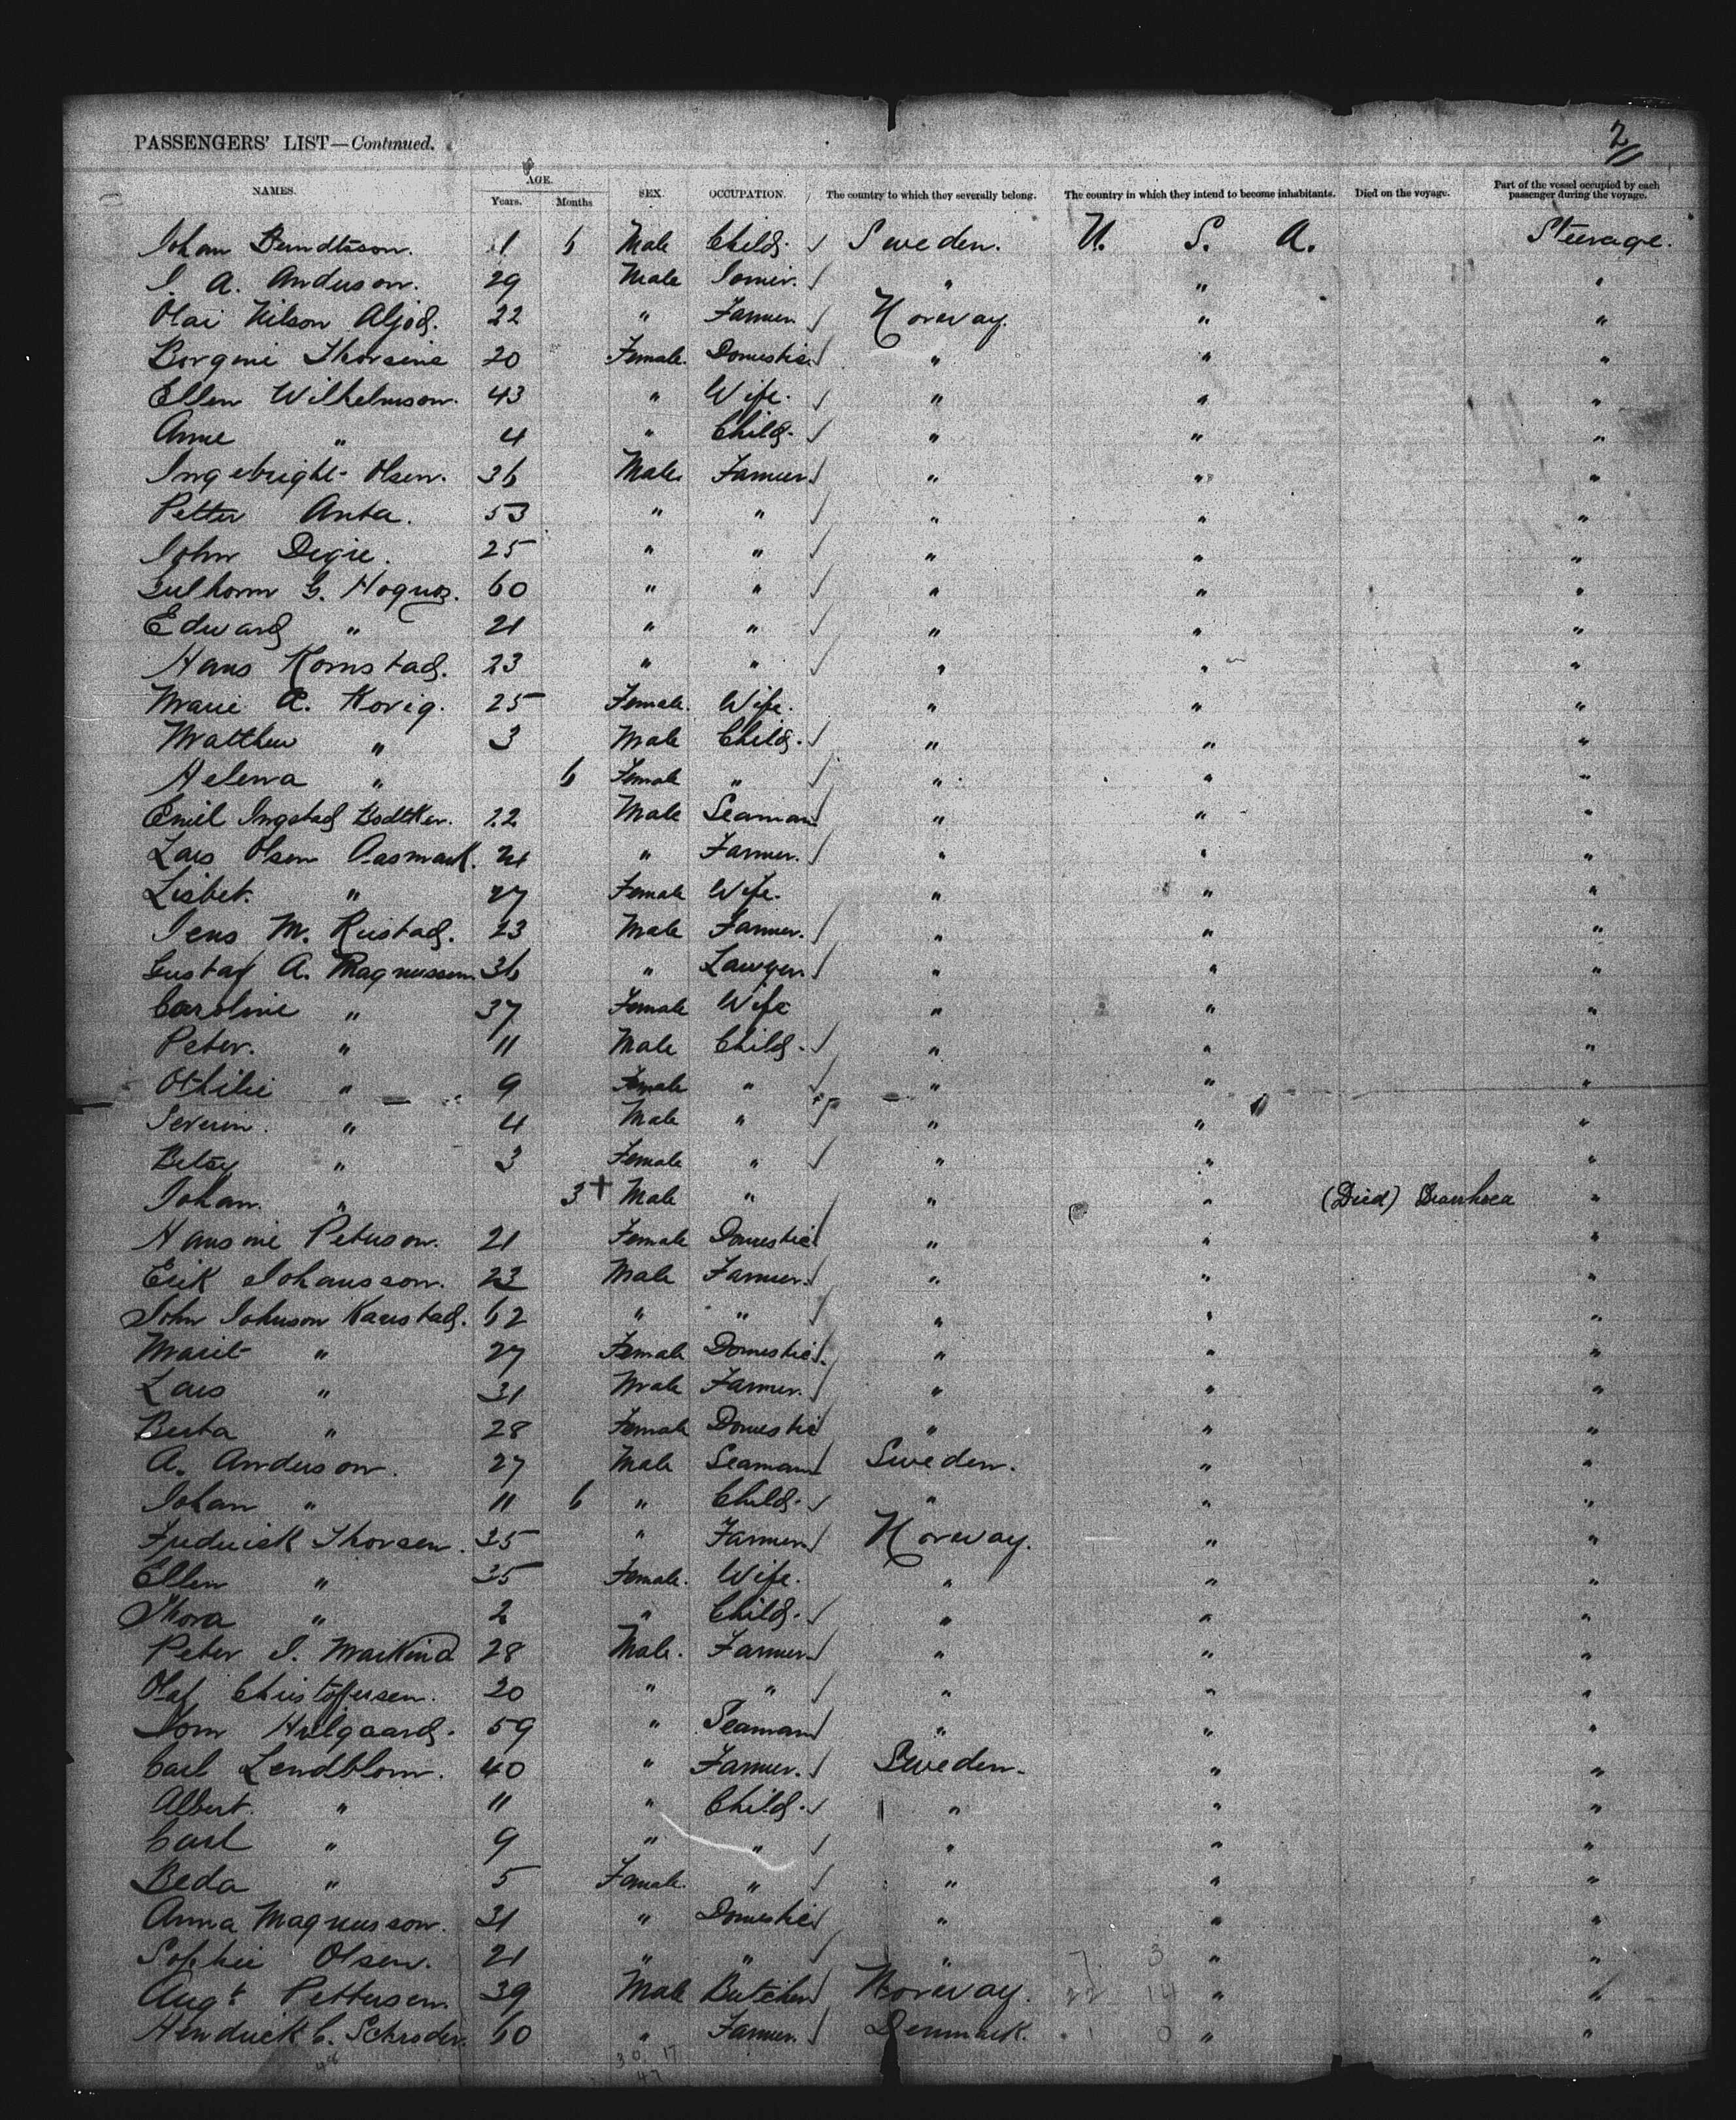 2
PASSENGERS' LIST—Continued.
NAMES. AGE. Years. Months SEX. OCCUPATION. The country to which they severally belong. The country in which they intend to become inhabitants. Died on the voyage. Part of the vessel occupied by each passenger during the voyage.
Johan Berndtsson. 1 6 Male Child. Sweden. U. S. A. Steerage.
J. A. Anderson. 29 Male " " "
Olai Nilson 22 " Farmer. Norway. " "
Borgine Thorsine 20 Female. Domestic. " " "
Ellen Wilhelmson. 43 " Wife. " " "
Anne " 4 " Child. " " "
Ingebright Olsen. 36 Male Farmer. " " "
Petter Anta. 53 " " " " "
John Degie. 25 " " " " "
G. 60 " " " " "
Edward " 21 " " " " "
Hans Kornstad. 23 " " " " "
Marie A. Korig. 25 Female. Wife. " " "
Matthew " 3 Male Child. " " "
Helena " 6 Female " " " "
Emil Ingstad Bodtker. 22 Male Seaman " " "
Lars Olsen Aasmark. 21 " Farmer. " " "
Lisbet. " 27 Female Wife. " " "
Jens M. Rustad. 23 Male Farmer. " " "
Gustaf A. Magnussen 36 " Lawyer. " " "
Caroline " 37 Female Wife " " "
Peter. " 11 Male Child. " " "
Othilie " 9 Female " " " "
Severin. " 4 Male " " " "
Betsy " 3 Female " " " "
Johan. " 3 + Male " " " (Died) Diarrhoea "
Hansine Peterson. 21 Female Domestic " " "
Erik Johansson. 23 Male Farmer. " " "
John Johnson Kaerstad. 62 " " " " "
Marit " 27 Female Domestic. " " "
Lars " 31 Male Farmer. " " "
Berta " 28 Female Domestic " " "
A. Anderson. 27 Male Seaman Sweden. " "
Johan " 11 6 " Child. " " "
Frederick Thorsen. 35 " Farmer Norway. " "
Ellen " 35 Female. Wife. " " "
Thora " 2 " Child. " " "
Peter J. 28 Male. Farmer " " "
Olaf Christoffersen. 20 " " " " "
Hulgaard. 59 " Seaman " " "
Carl Lendblom. 40 " Farmer. Sweden. " "
Albert. " 11 " Child. " " "
Carl " 9 " " " " "
Beda " 5 Female. " " " "
Anna Magnusson. 31 " Domestic " " "
Sophie Olsen. 21 " " " 7 3 " "
Augt Pettersen. 39 Male Butcher Norway. 22 14 " "
Hendrick C. Schroder. 60 " Farmer. Denmark. 1 0 " "
48 30 17
47